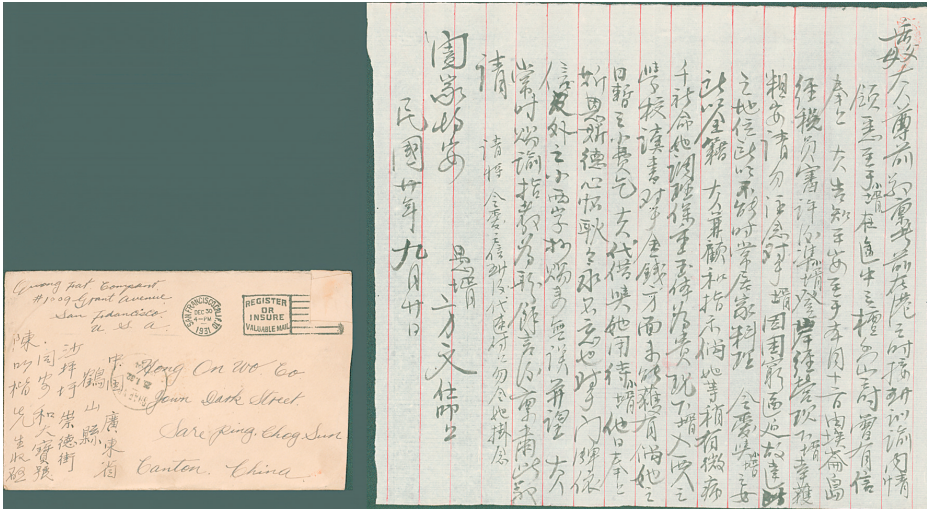 岳父母大人尊前敬稟者前在港之時接到訓諭內情
領悉至于小婿在途中檀香山時曾有信
奉上 大人告知平安至于本月十一日
經稅員審許婿登岸經營幸獲
粗安請勿注念婿因困窮所迫故違
之地位此以不能時常居家料理 令愛
此以全籍 大人兼顧和指示倘她等稍有微病
千祈命她調理保重玉體為貴現下婿入西人之
學校讀書對于金錢方面未能獲有倘她之
日暫之小費乞大人代借與她用待小婿他日奉上
斯恩斯德心懷耿耿永不忘也對于門牌依
信皮外之小西字抄為無誤并望 大人
常時賜諭指教為盼餘言後稟肅此敬
請
請將 令愛之信到後代交付之勿令她掛念
闔家均安 愚婿 方文仕叩上
民國廿年九月廿日
Quong Fat Company
#1009 Grant Avenue
San Francisco
U S A
SAN FRANCISCO, CALIF.
DEC 30
4-PM
1931
REGISTER
OR
INSURE
VALUABLE MAIL
Hong On Wo Co
Town Dark Street
Sare ping, Chog Sun
Canton, China
中國廣東省
鶴山縣
沙坪圩崇德街
同安和大寶號
陳明楷先生收啟